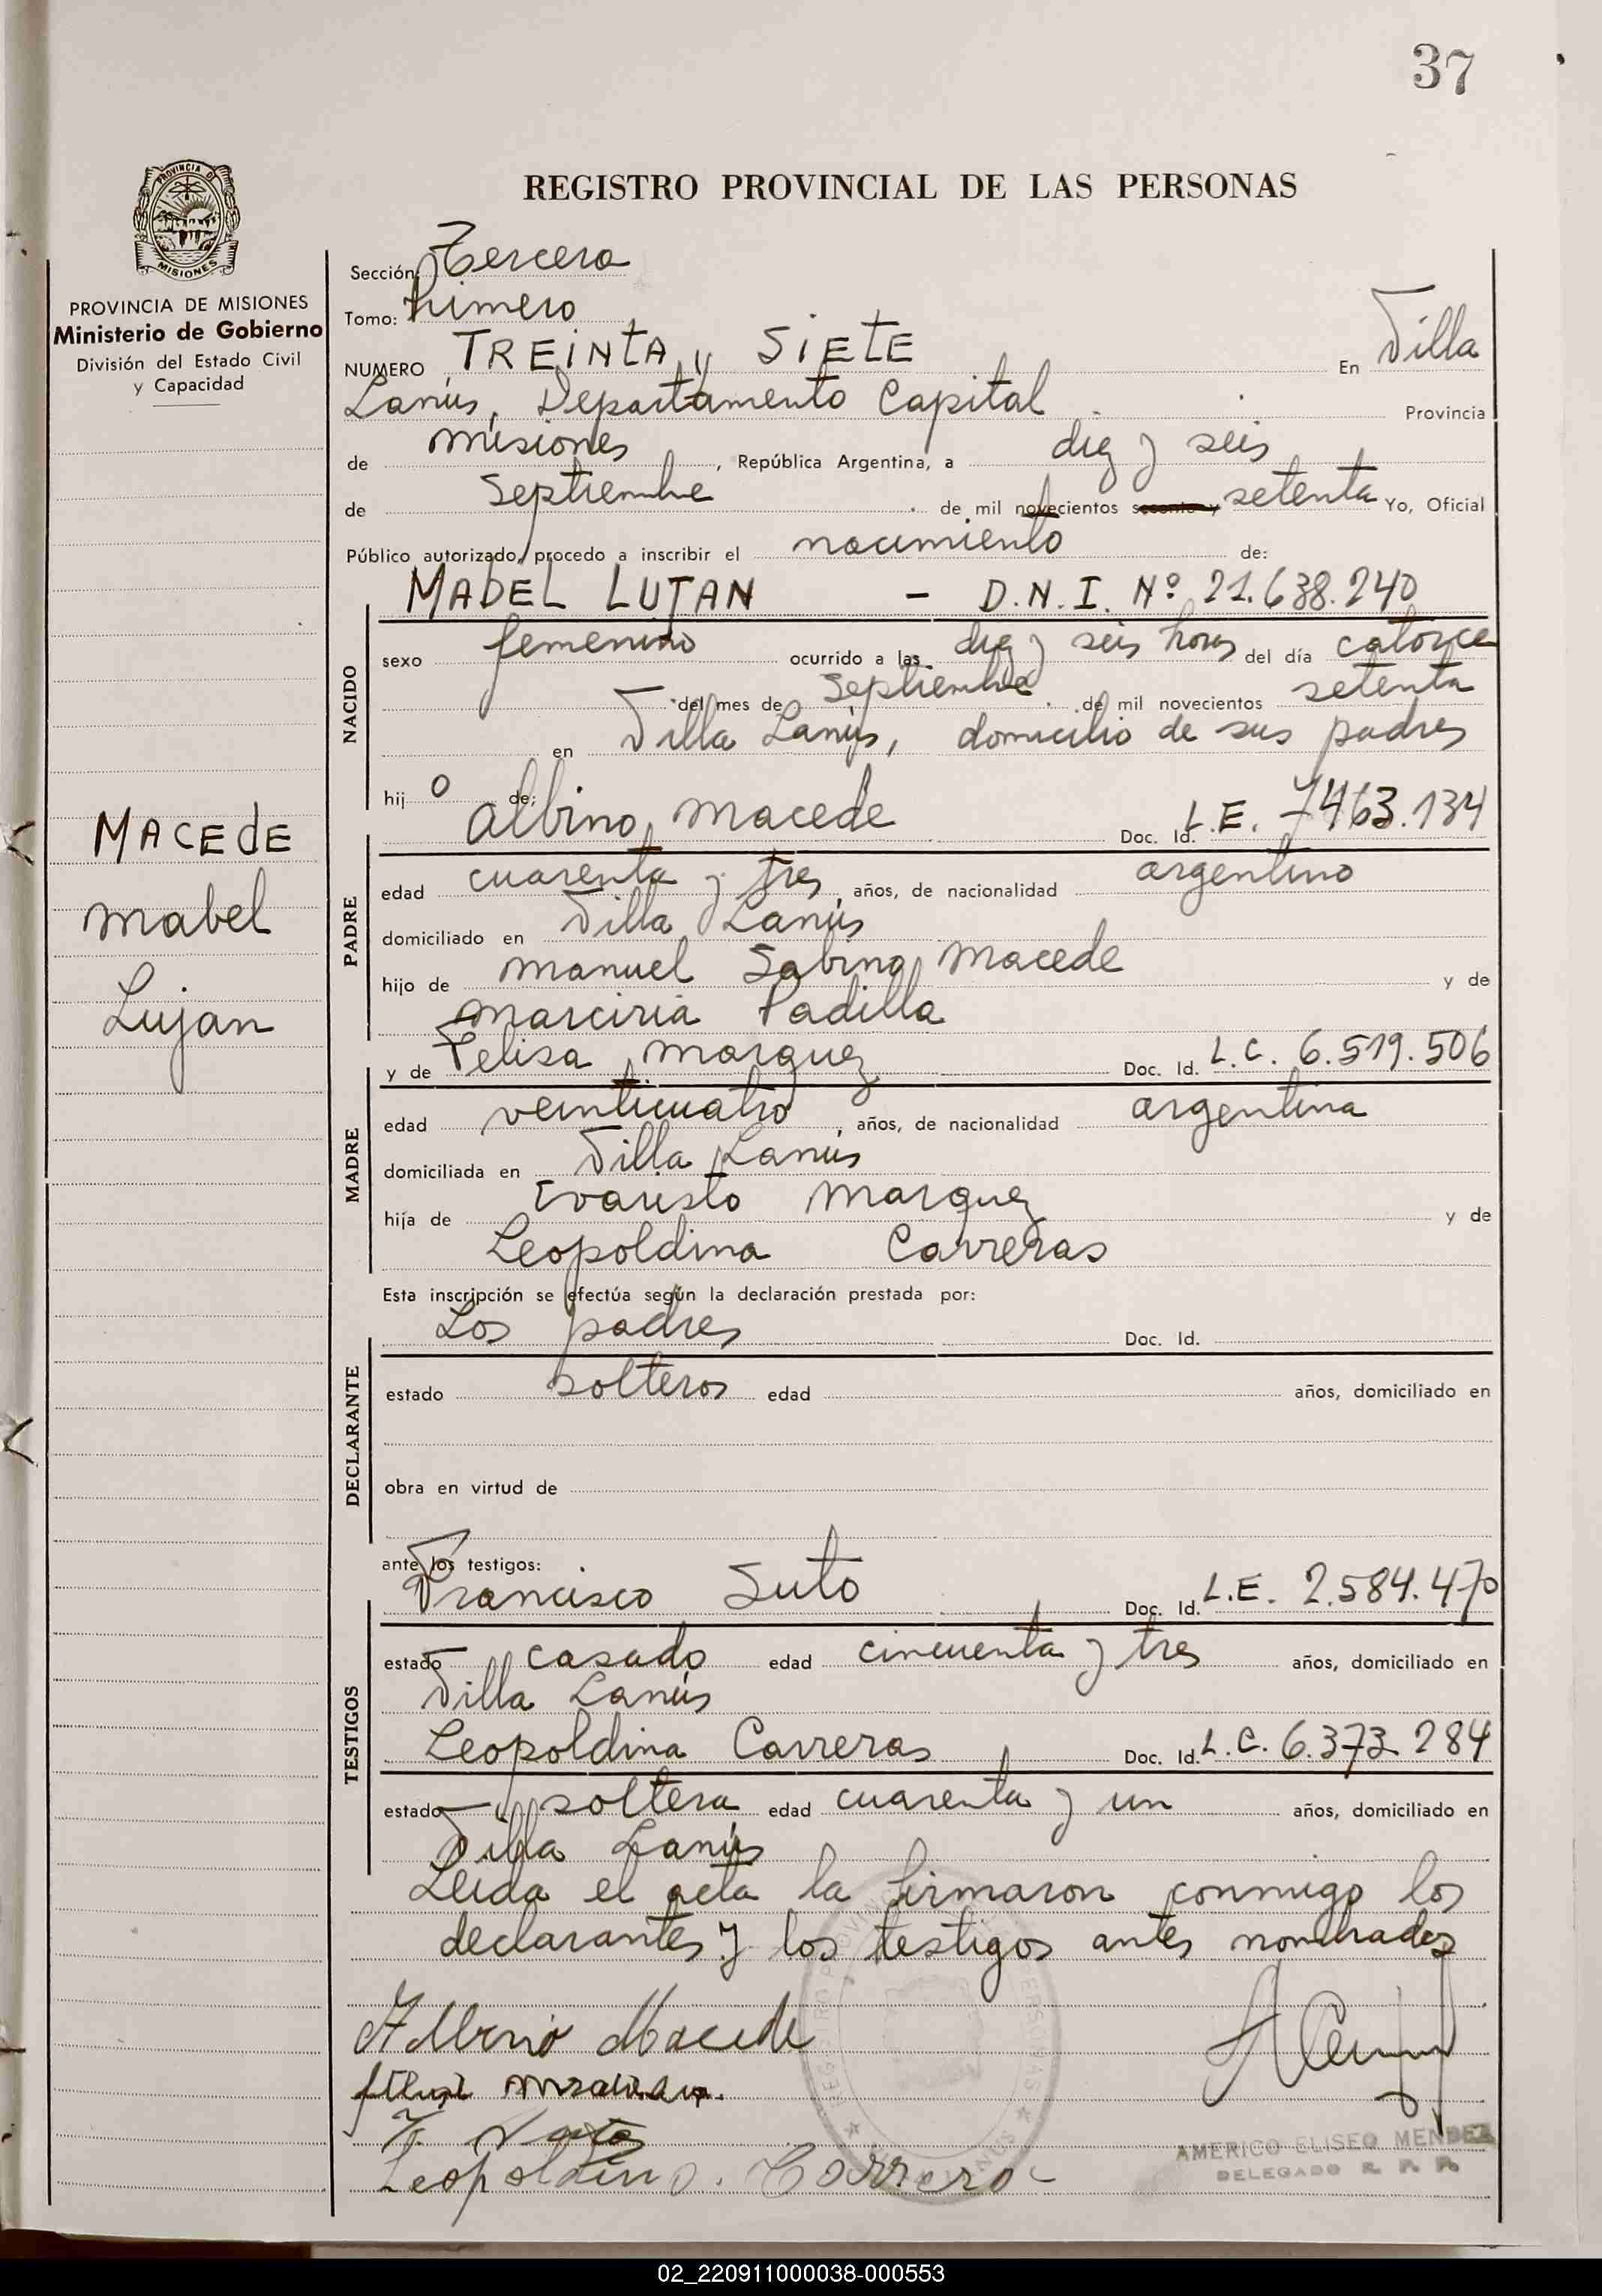 37
PROVINCIA DE MISIONES
Ministerio de Gobierno
División del Estado Civil
y Capacidad
MACEdE
Mabel
Lujan
REGISTRO PROVINCIAL DE LAS PERSONAS
Sección: Tercera
Tomo: Primero
NUMERO TREINTA y SIETE En Villa
Lanús, Departamento Capital Provincia
de Misiones, República Argentina, a diez y seis
de Septiembre de mil novecientos sesenta y setenta Yo, Oficial
Público autorizado, procedo a inscribir el nacimiento de:
MABEL LUJAN - D.N.I. Nº 21.638.240
NACIDO
sexo femenino ocurrido a las diez y seis horas del día catorce
del mes de Septiembre de mil novecientos setenta
en Villa Lanús, domicilio de sus padres
hijo de:
Albino Macede Doc. Id. L.E. 7463.134
PADRE
edad cuarenta y tres años, de nacionalidad argentino
domiciliado en Villa Lanús
hijo de Manuel Sabino Macede y de
Marciria Padilla
y de Felisa Marquez Doc. Id. L.C. 6.519.506
MADRE
edad veinticuatro, años, de nacionalidad argentina
domiciliada en Villa Lanús
hija de Evaristo Marquez y de
Leopoldina Carreras
Esta inscripción se efectúa según la declaración prestada por:
Los padres Doc. Id.
DECLARANTE
estado solteros edad años, domiciliado en
obra en virtud de
ante los testigos:
Francisco Suto Doc. Id. L.E. 2.584.470
TESTIGOS
estado casado edad cincuenta y tres años, domiciliado en
Villa Lanús
Leopoldina Carreras Doc. Id. L.C. 6.373.284
estado soltera edad cuarenta y un años, domiciliado en
Villa Lanús
Leida el acta la firmaron conmigo los
declarantes y los testigos antes nombrados
Albino Macede
Leopoldina Carrera
AMERICO ELISEO MENDEZ
DELEGADO R. P. P.
02_220911000038-000553